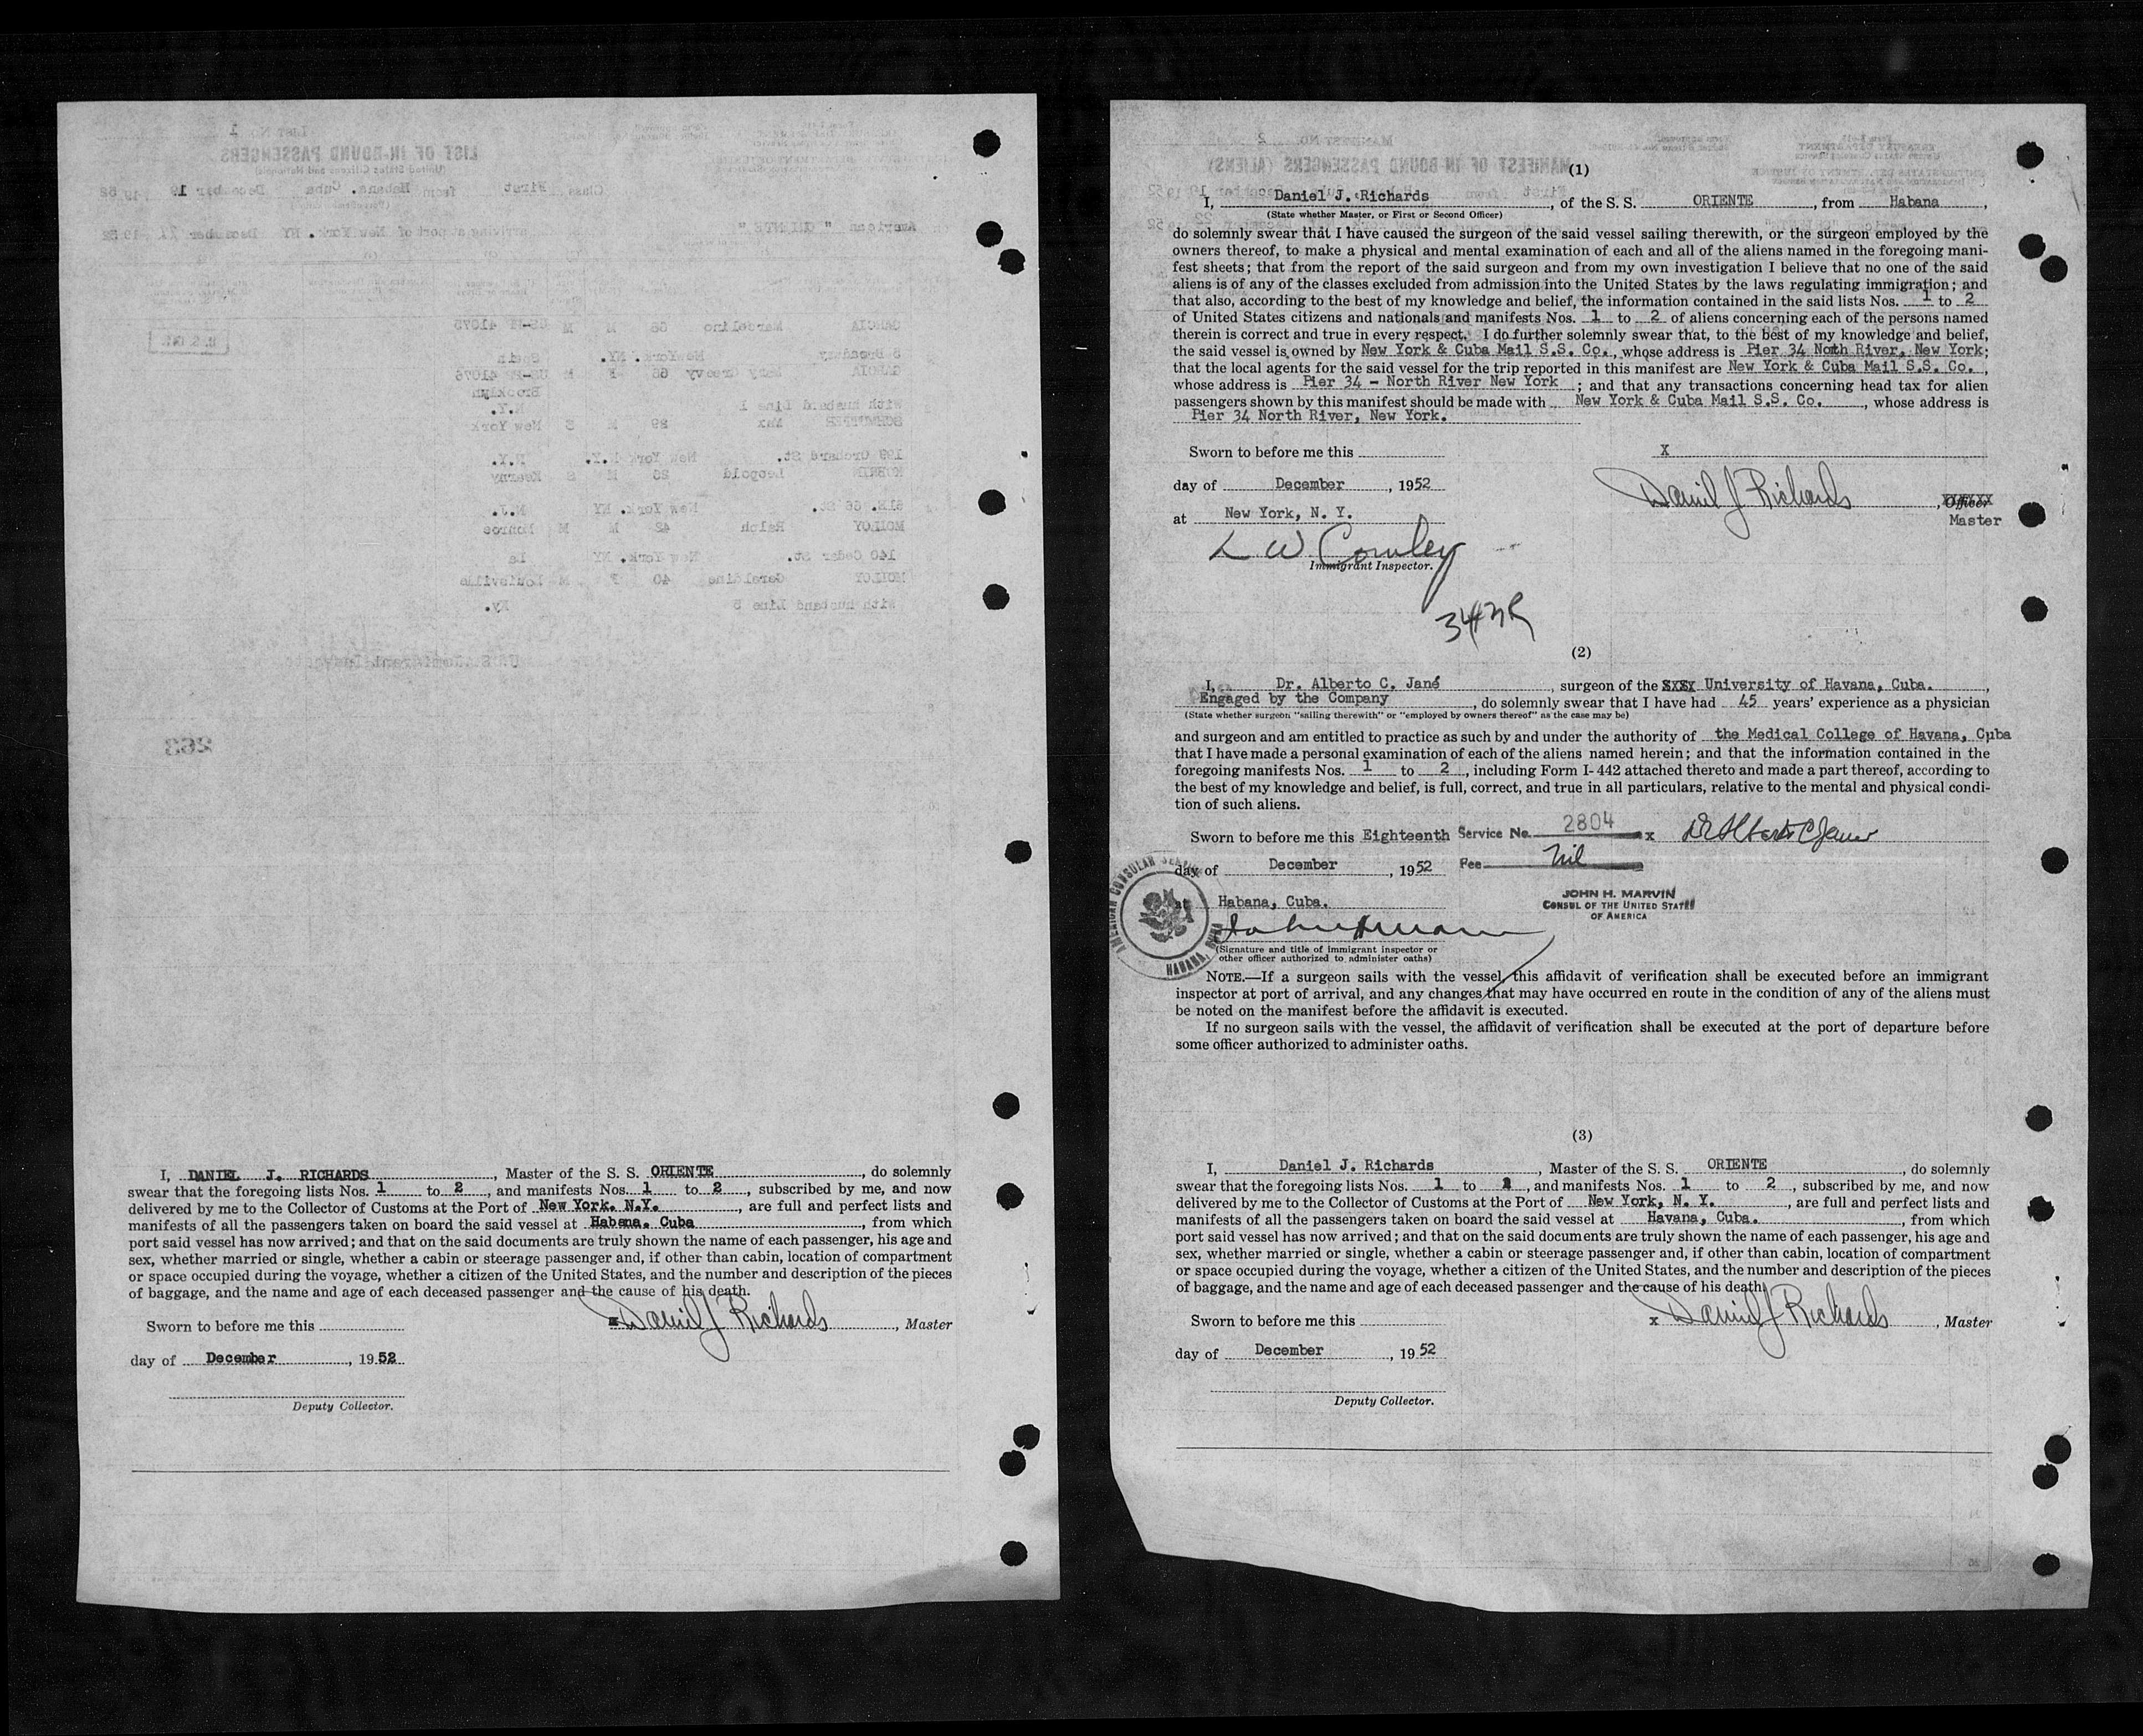 I, DANIEL J. RICHARDS, Master of the S. S. ORIENTE, do solemnly
swear that the foregoing lists Nos. 1 to 2, and manifests Nos. 1 to 2, subscribed by me, and now
delivered by me to the Collector of Customs at the Port of New York, N.Y., are full and perfect lists and
manifests of all the passengers taken on board the said vessel at Habana. Cuba, from which
port said vessel has now arrived; and that on the said documents are truly shown the name of each passenger, his age and
sex, whether married or single, whether a cabin or steerage passenger and, if other than cabin, location of compartment
or space occupied during the voyage, whether a citizen of the United States, and the number and description of the pieces
of baggage, and the name and age of each deceased passenger and the cause of his death.
Sworn to before me this
Daniel J Richards, Master
day of December, 1952
Deputy Collector.
(1)
I, Daniel J. Richards, of the S. S. ORIENTE, from Habana,
(State whether Master, or First or Second Officer)
do solemnly swear that I have caused the surgeon of the said vessel sailing therewith, or the surgeon employed by the
owners thereof, to make a physical and mental examination of each and all of the aliens named in the foregoing mani-
fest sheets; that from the report of the said surgeon and from my own investigation I believe that no one of the said
aliens is of any of the classes excluded from admission into the United States by the laws regulating immigration; and
that also, according to the best of my knowledge and belief, the information contained in the said lists Nos. 1 to 2
of United States citizens and nationals and manifests Nos. 1 to 2 of aliens concerning each of the persons named
therein is correct and true in every respect. I do further solemnly swear that, to the best of my knowledge and belief,
the said vessel is owned by New York & Cuba Mail S.S. Co., whose address is Pier 34 North River, New York;
that the local agents for the said vessel for the trip reported in this manifest are New York & Cuba Mail S.S. Co.,
whose address is Pier 34 - North River New York; and that any transactions concerning head tax for alien
passengers shown by this manifest should be made with New York & Cuba Mail S.S. Co., whose address is
Pier 34 North River, New York.
Sworn to before me this
X
day of December, 1952
Daniel J Richards, Officer
Master
at New York, N. Y.
L W Cowley
Immigrant Inspector.
(2)
I, Dr. Alberto C. Jané, surgeon of the University of Havana, Cuba.,
Engaged by the Company, do solemnly swear that I have had 45 years' experience as a physician
(State whether surgeon "sailing therewith" or "employed by owners thereof" as the case may be)
and surgeon and am entitled to practice as such by and under the authority of the Medical College of Havana, Cuba
that I have made a personal examination of each of the aliens named herein; and that the information contained in the
foregoing manifests Nos. 1 to 2, including Form I-442 attached thereto and made a part thereof, according to
the best of my knowledge and belief, is full, correct, and true in all particulars, relative to the mental and physical condi-
tion of such aliens.
Sworn to before me this Eighteenth Service No. 2804 x
day of December, 1952 Fee Nil
JOHN H. MARVIN
CONSUL OF THE UNITED STATES
OF AMERICA
at Habana, Cuba.
AMERICAN CONSULAR SERVICE
HABANA, CUBA
(Signature and title of immigrant inspector or
other officer authorized to administer oaths)
NOTE.—If a surgeon sails with the vessel, this affidavit of verification shall be executed before an immigrant
inspector at port of arrival, and any changes that may have occurred en route in the condition of any of the aliens must
be noted on the manifest before the affidavit is executed.
If no surgeon sails with the vessel, the affidavit of verification shall be executed at the port of departure before
some officer authorized to administer oaths.
(3)
I, Daniel J. Richards, Master of the S. S. ORIENTE, do solemnly
swear that the foregoing lists Nos. 1 to 2, and manifests Nos. 1 to 2, subscribed by me, and now
delivered by me to the Collector of Customs at the Port of New York, N. Y., are full and perfect lists and
manifests of all the passengers taken on board the said vessel at Havana, Cuba., from which
port said vessel has now arrived; and that on the said documents are truly shown the name of each passenger, his age and
sex, whether married or single, whether a cabin or steerage passenger and, if other than cabin, location of compartment
or space occupied during the voyage, whether a citizen of the United States, and the number and description of the pieces
of baggage, and the name and age of each deceased passenger and the cause of his death.
Sworn to before me this
x Daniel J Richards, Master
day of December, 1952
Deputy Collector.